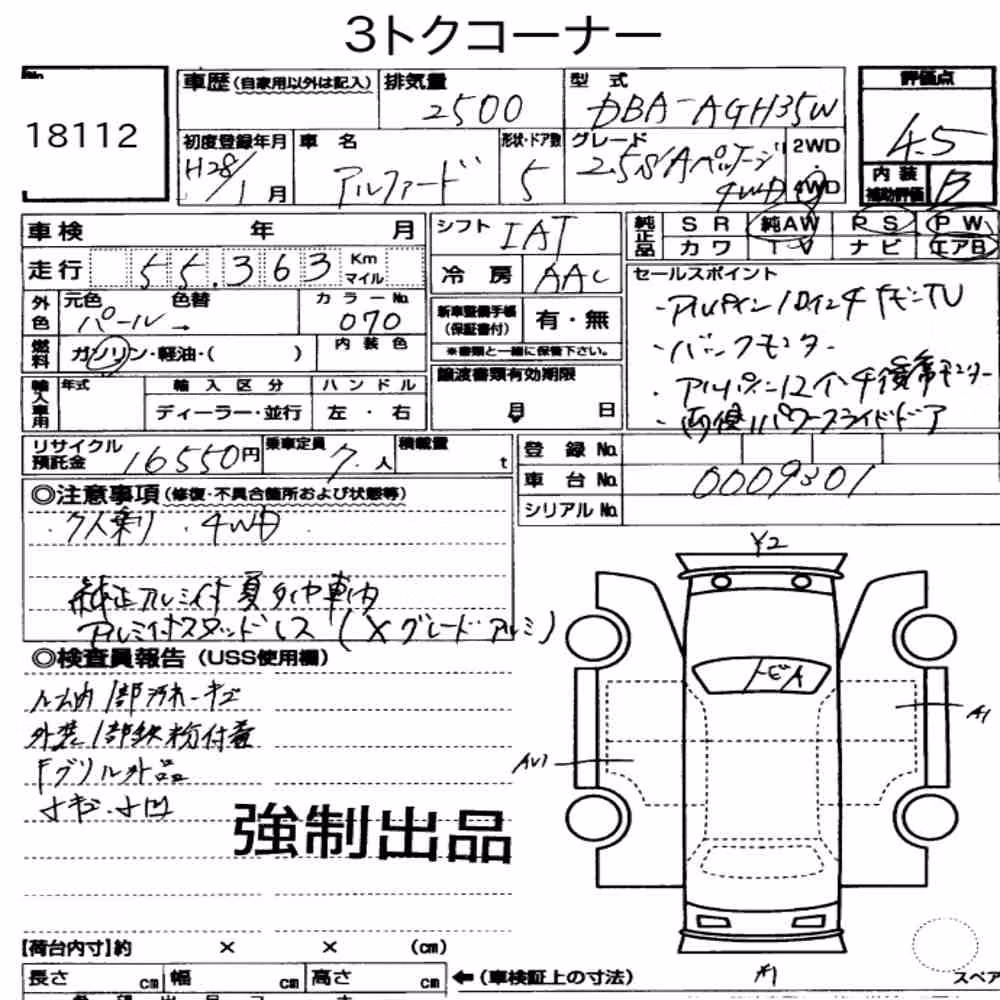 3トクコーナー
No
18112
車歴 (自家用以外は記入)
排気量 2500
型式 DBA-AGH35W
評価点 4.5
初度登録年月 H28/1月
車名 アルファード
形状・ドア数 5
グレード 2.5S Aパッケージ 4WD
2WD・4WD
内装補助評価 B
車検 年 月
シフト IAT
純正品 SR 純AW PS PW
カワ TV ナビ エアB
走行 55,363 Km マイル
冷房 AAC
セールスポイント
・アルパイン10インチナビTV
・バックモニター
・アルパイン12インチ後席モニター
・両側パワースライドドア
外色 元色 パール→ 色替
カラーNo. 070
新車整備手帳(保証書付) 有・無
※書類と一緒に保管下さい。
燃料 ガソリン・軽油・( )
内装色
輸入車用 年式 輸入区分 ハンドル
ディーラー・並行 左・右
譲渡書類有効期限
月 日
リサイクル預託金 16550円
乗車定員 7人
積載量 t
登録No.
車台No. 0009301
シリアルNo.
◎注意事項(修復・不具合箇所および状態等)
・7人乗り ・4WD
純正アルミ付夏タイヤ車内
アルミ付スタッドレス(Xグレードアルミ)
◎検査員報告(USS使用欄)
ルーム内1部汚れ・キズ
外装1部鉄粉付着
Fグリル外品
小キズ・小凹
強制出品
Y2
トビA
A1
AU1
A1
【荷台内寸】約 × × (cm)
長さ cm 幅 cm 高さ cm
←(車検証上の寸法)
スペア